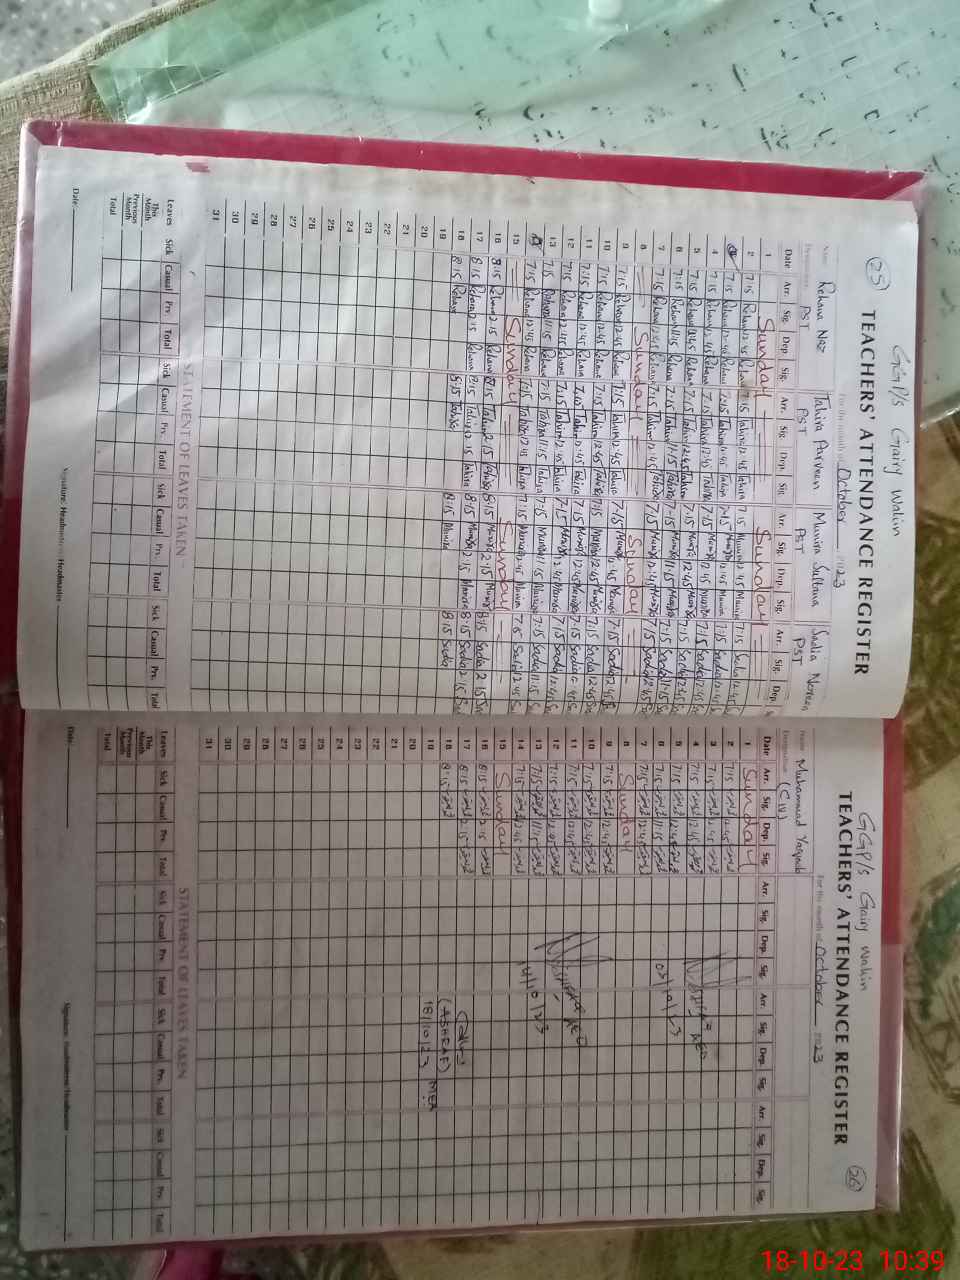 GGP/s Gairy Wakin
25
TEACHERS' ATTENDANCE REGISTER
For the month of October 2023
Name Rehana Naz Tahira Parveen Munira Sultana Sadia Noreen
PST PST PST PST
Date Arr. Sig. Dep. Sig. Arr. Sig. Dep. Sig. Arr. Sig. Dep. Sig. Arr. Sig. Dep.
1 Sunday Sunday
2 7:15 Rehana 12:45 Rehana 7:15 Tahira 12:45 Tahira 7:15 Munira 12:45 Munira 7:15 Sadia 12:45
7:15 Rehana 12:45 Rehana 7:15 Tahira 12:45 Tahira 7:15 Munira 12:45 Munira 7:15 Sadia 12:45
4 7:15 Rehana 12:45 Rehana 7:15 Tahira 12:45 Tahira 7:15 Munira 12:45 Munira 7:15 Sadia 12:45
5 7:15 Rehana 12:45 Rehana 7:15 Tahira 12:45 Tahira 7:15 Munira 12:45 Munira 7:15 Sadia 12:45
6 7:15 Rehana 11:15 Rehana 7:15 Tahira 11:15 Tahira 7:15 Munira 11:15 Munira 7:15 Sadia 11:15
7 7:15 Rehana 12:45 Rehana 7:15 Tahira 12:45 Tahira 7:15 Munira 12:45 Munira 7:15 Sadia 12:45
8 Sunday Sunday
9 7:15 Rehana 12:45 Rehana 7:15 Tahira 12:45 Tahira 7:15 Munira 12:45 Munira 7:15 Sadia 12:45
10 7:15 Rehana 12:45 Rehana 7:15 Tahira 12:45 Tahira 7:15 Munira 12:45 Munira 7:15 Sadia 12:45
11 7:15 Rehana 12:45 Rehana 7:15 Tahira 12:45 Tahira 7:15 Munira 12:45 Munira 7:15 Sadia 12:45
12 7:15 Rehana 12:45 Rehana 7:15 Tahira 12:45 Tahira 7:15 Munira 12:45 Munira 7:15 Sadia 12:45
13 7:15 Rehana 11:15 Rehana 7:15 Tahira 11:15 Tahira 7:15 Munira 11:15 Munira 7:15 Sadia 11:15
7:15 Rehana 12:45 Rehana 7:15 Tahira 12:45 Tahira 7:15 Munira 12:45 Munira 7:15 Sadia 12:45
15 Sunday Sunday
16 8:15 Rehana 2:15 Rehana 8:15 Tahira 2:15 Tahira 8:15 Munira 2:15 Munira 8:15 Sadia 2:15
17 8:15 Rehana 2:15 Rehana 8:15 Tahira 2:15 Tahira 8:15 Munira 2:15 Munira 8:15 Sadia 2:15
18 8:15 Rehana 8:15 Tahira 8:15 Munira 8:15 Sadia
19
20
21
22
23
24
25
26
27
28
29
30
31
STATEMENT OF LEAVES TAKEN
Leaves Sick Casual Prv. Total Sick Casual Prv. Total Sick Casual Prv. Total Sick Casual Prv. Total
This Month
Previous Month
Total
Date: Signature: Headmistress/Headmaster
GGP/s Gairy Wakin
26
TEACHERS' ATTENDANCE REGISTER
For the month of October 2023
Name Muhammad Yaqoob
Designation (C IV)
Date Arr. Sig. Dep. Sig. Arr. Sig. Dep. Sig. Arr. Sig. Dep. Sig. Arr. Sig. Dep. Sig.
1 Sunday
2 7:15 12:45
3 7:15 12:45
4 7:15 12:45
5 7:15 12:45
6 7:15 11:15
7 7:15 12:45
07/10/23
8 Sunday
9 7:15 12:45
10 7:15 12:45
11 7:15 12:45
12 7:15 12:45
13 7:15 11:15
14 7:15 12:45
14/10/23
15 Sunday
16 8:15 2:15
17 8:15 2:15
18 8:15
(ASHRAF)
19
18/10/23 MEA
20
21
22
23
24
25
26
27
28
29
30
31
STATEMENT OF LEAVES TAKEN
Leaves Sick Casual Prv. Total Sick Casual Prv. Total Sick Casual Prv. Total Sick Casual Prv. Total
This Month
Previous Month
Total
Date: Signature: Headmistress/Headmaster
18-10-23 10:39